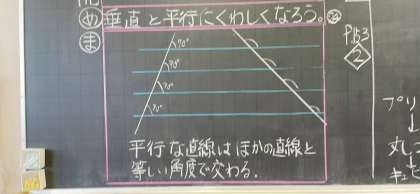 め 垂直と平行にくわしくなろう。
ま
P.153
②
70°
70°
70°
70°
平行な直線はほかの直線と
等しい角度で交わる。
プリ
↓